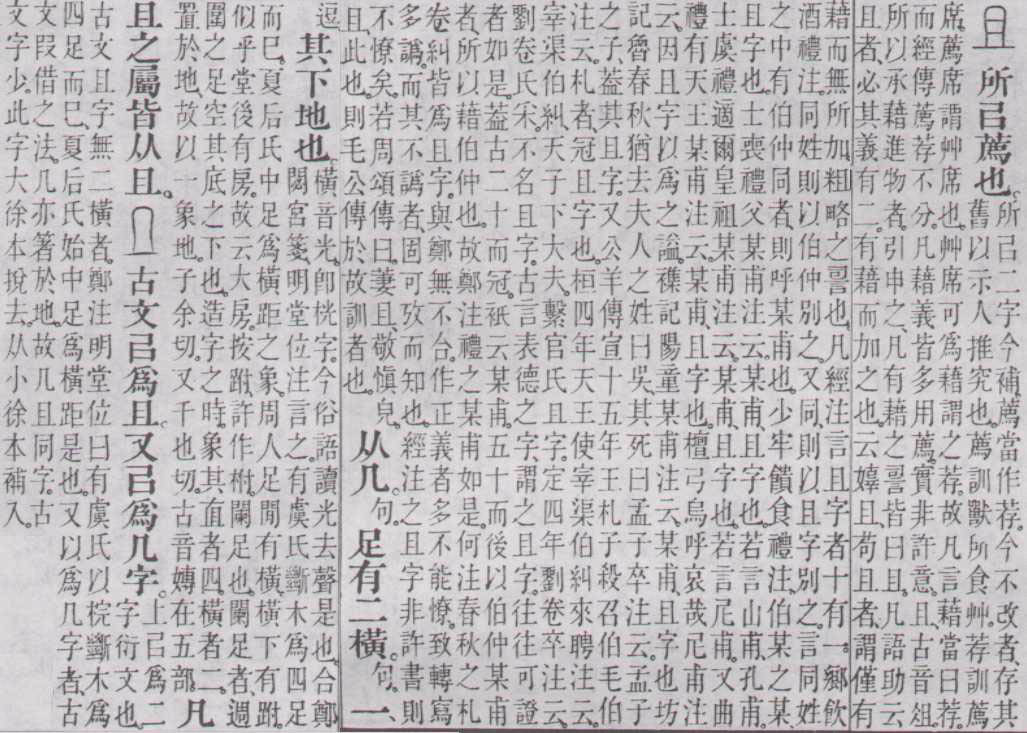 且 所㠯薦也。
所㠯二字今補。薦當作荐。今不改者、存其
舊以示人推究也。薦訓獸所食艸。荐訓薦
席。薦席謂艸席也。艸席可爲藉謂之荐。故凡言藉當曰荐。
而經傳薦荐不分。凡藉義皆多用薦。實非許意。且、古音俎。
所以承藉進物者。引申之、凡有藉之䛐皆曰且。凡語助云
且者、必其義有二。有藉而加之也。云嫴且、苟且者、謂僅有
藉而無所加。粗略之䛐也。凡經注言且字者十有一。鄉飮
酒禮注。同姓則以伯仲別之。又同、則以且字別之。言同姓
之中有伯仲同者、則呼某甫也。少牢饋食禮注。伯某之某
且字也。士喪禮父某甫注云。某甫、且字也。若言山甫孔甫。
士虞禮適爾皇祖某甫注云。某甫、且字也。若言尼甫。又曲
禮有天王某甫注云。某甫、且字也。檀弓烏呼哀哉尼甫注
云。因且字以爲之謚。襍記陽童某甫注云。某甫、且字也。坊
記魯春秋猶去夫人之姓曰吳、其死曰孟子卒注云。孟子
之子、葢其且字。又公羊傳宣十五年王札子殺召伯毛伯
注云。札者、冠且字也。桓四年天王使宰渠伯糾來聘注云。
宰渠伯糾、天子下大夫。繫官氏且字。定四年劉卷卒注云。
劉卷氏采。不名且字。古言表德之字、謂之且字。往往可證
者如是。葢古二十而冠。衹云某甫。五十而後以伯仲某甫
者、所以藉伯仲也。故鄭注禮之某甫如是。何注春秋之札
卷糾皆爲且字。與鄭無不合。作正義者多不能憭。致轉寫
多譌。而其不譌者、固可攷而知也。經注之且字非許書則
不憭矣。若周頌傳曰。萋且、敬愼皃。
且、此也。則毛公傳於故訓者也。
从几。句足有二橫。句一、
逗其下地也。
橫音光。卽桄字。今俗語讀光去聲是也。合鄭
閟宮箋明堂位注言之。有虞氏斷木爲四足
而巳。夏后氏中足爲橫距之象。周人足閒有橫。橫下有跗。
似乎堂後有房。故云大房。按跗、許作柎。闌足也。闌足者、週
圍之足空其底之下也。造字之時。象其直者四、橫者二。
置於地、故以一象地。子余切。又千也切。古音嫥在五部。
凡
且之屬皆从且。古文㠯爲且。又㠯爲几字。
上㠯爲二
字衍文也。
古文且字。無二橫者、鄭注明堂位曰。有虞氏以梡。斷木爲
四足而巳。夏后氏始中足爲橫距是也。又以爲几字者、古
文叚借之法。几亦箸於地。故几且同字。古
文字少。此字大徐本捝去。从小徐本補入。